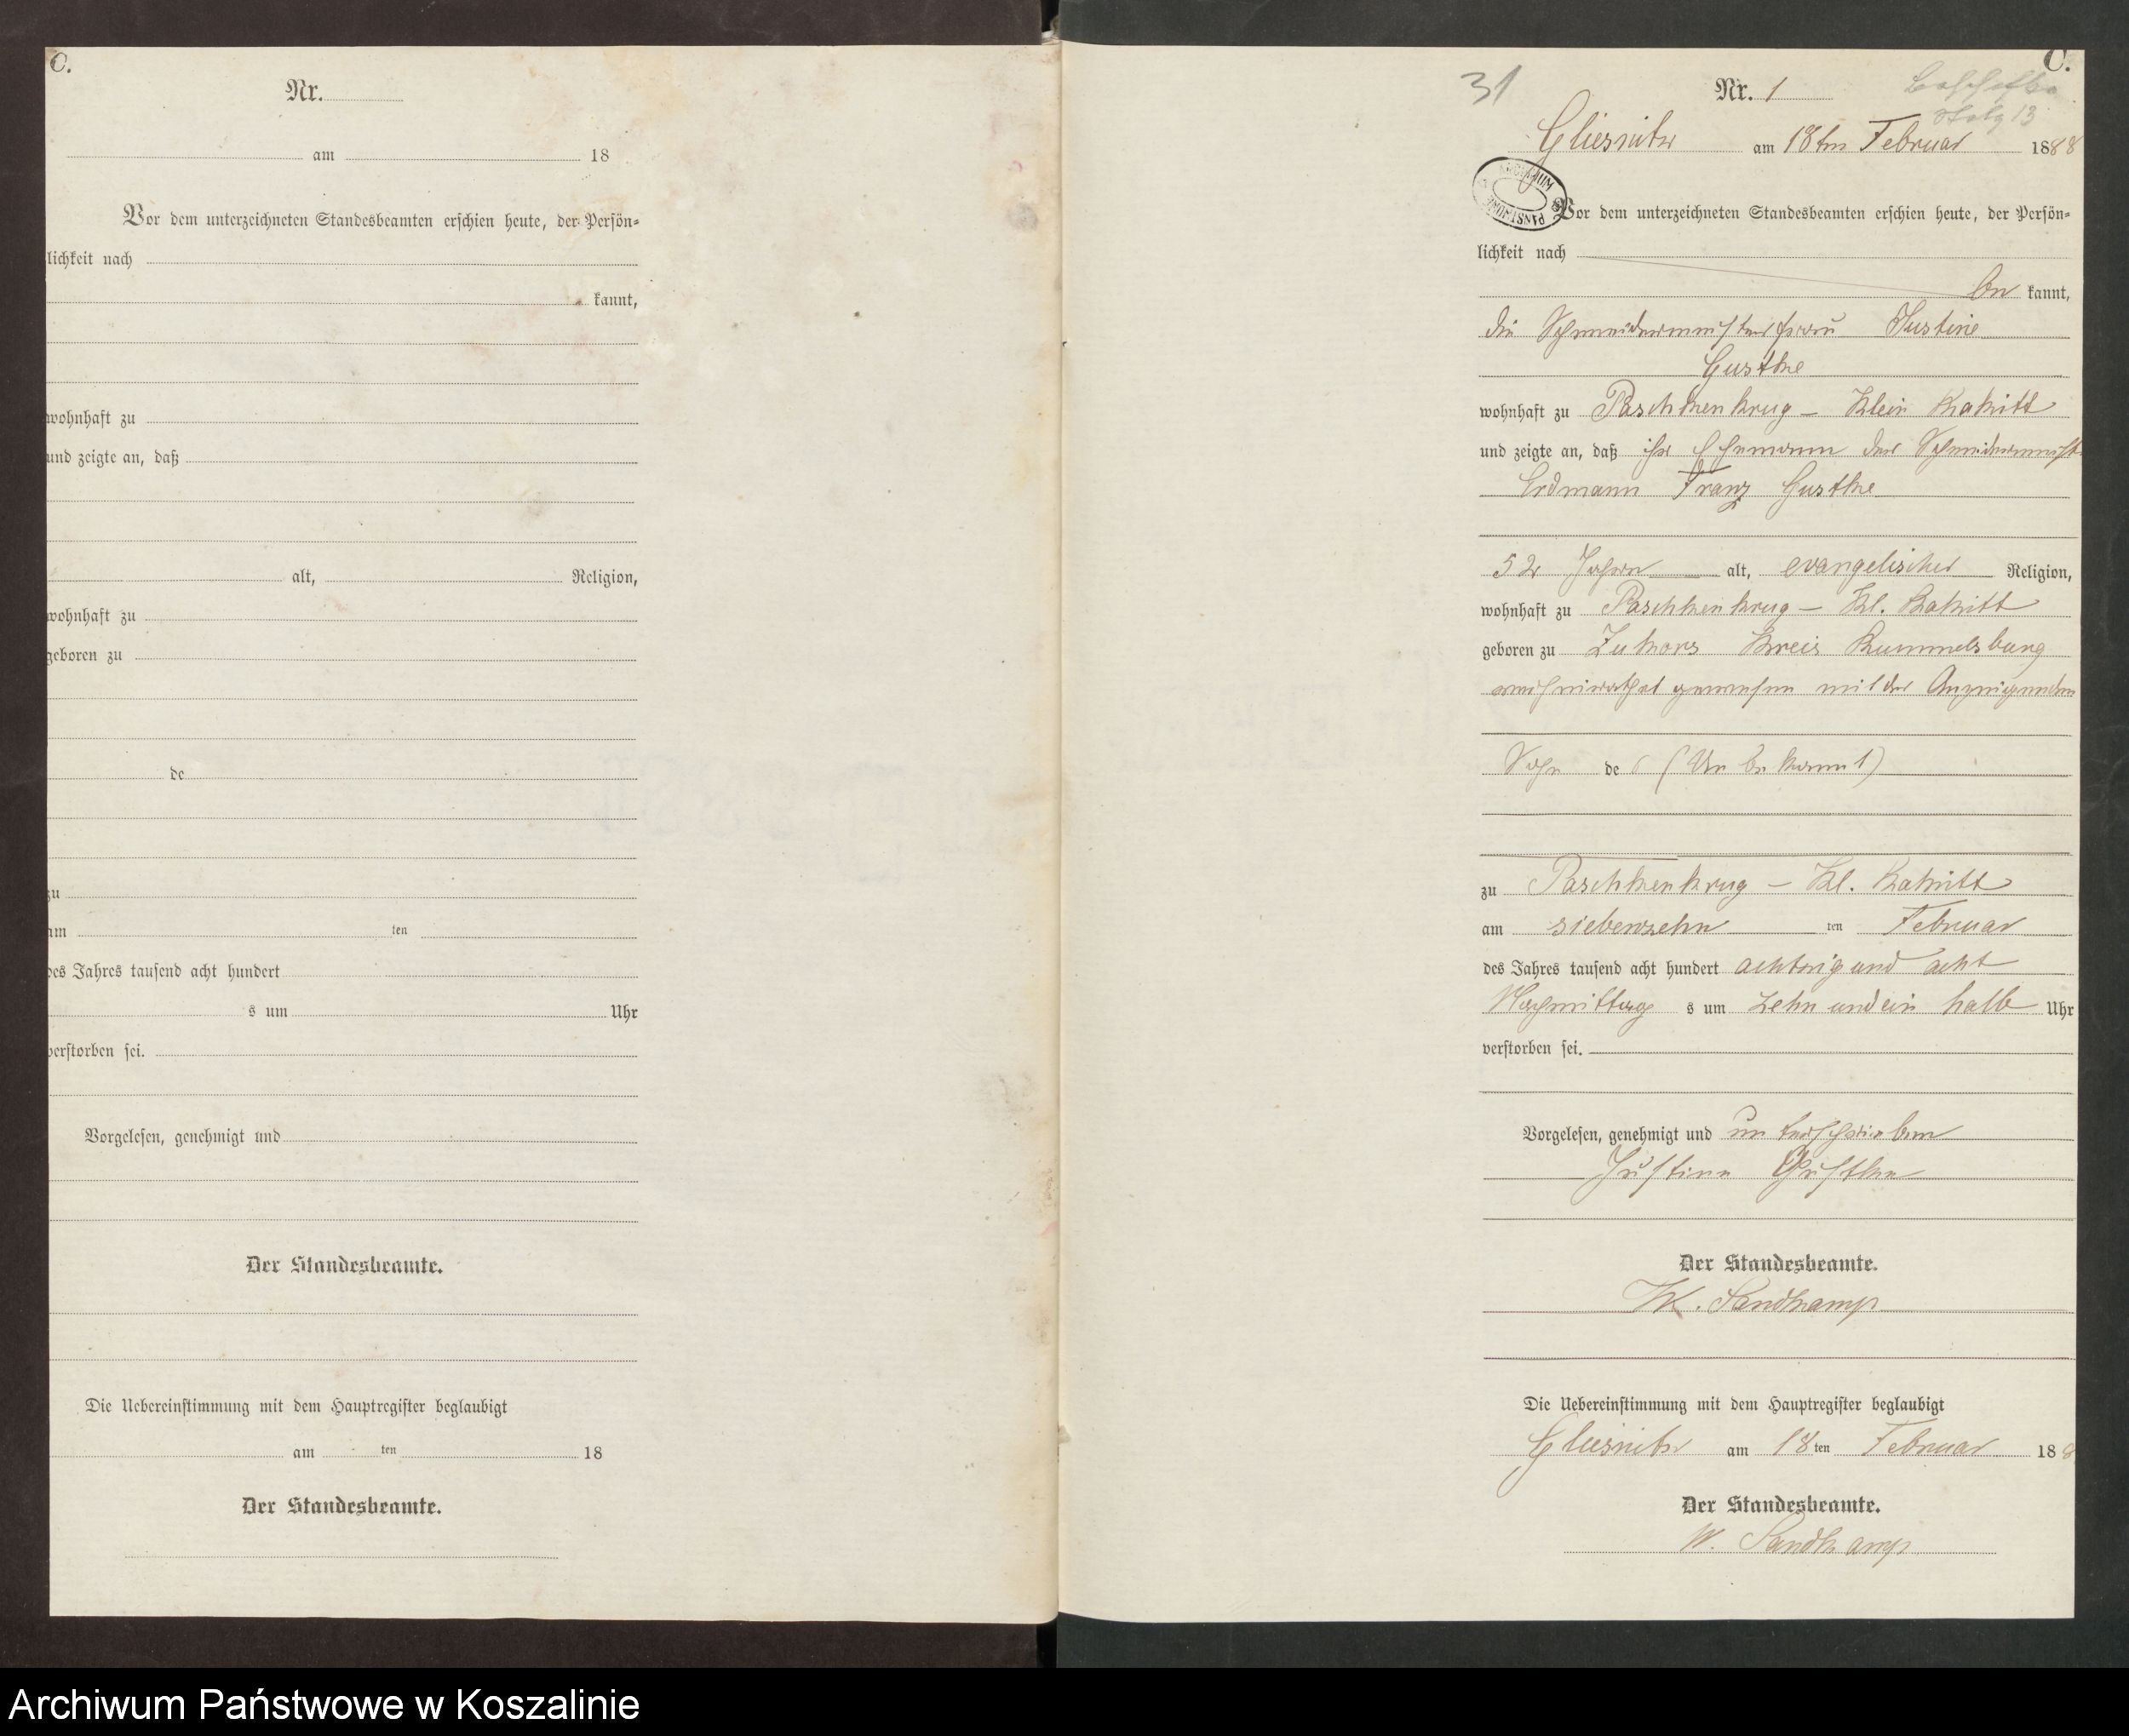 C.
Nr.
am 18
Vor dem unterzeichneten Standesbeamten erschien heute, der Persön=
lichkeit nach
kannt,
wohnhaft zu
und zeigte an, daß
alt, Religion,
wohnhaft zu
geboren zu
de
zu
am ten
des Jahres tausend acht hundert
s um Uhr
verstorben sei.
Vorgelesen, genehmigt und
Der Standesbeamte.
Die Uebereinstimmung mit dem Hauptregister beglaubigt
am ten 18
Der Standesbeamte.
C.
31
Nr. 1
Gliesnitz am 18ten Februar 1888
Vor dem unterzeichneten Standesbeamten erschien heute, der Persön=
lichkeit nach
be kannt,
die Schneidermeisterfrau Justine
Gusthe
wohnhaft zu Paschkenkrug - Klein Rakitt
und zeigte an, daß ihr Ehemann der Schneidermeist
Erdmann Franz Gusthe
52 Jahre alt, evangelischer Religion,
wohnhaft zu Paschkenkrug - Kl. Rakitt
geboren zu Zukors Kreis Rummelsburg
verheirathet gewesen mit der Anzeigenden
Sohn de r (Unbekannt)
zu Paschkenkrug - Kl. Rakitt
am siebenzehn ten Februar
des Jahres tausend acht hundert achtzig und acht
Nachmittag s um zehn und ein halb Uhr
verstorben sei.
Vorgelesen, genehmigt und unterschrieben
Justine Gusthe
Der Standesbeamte.
W. Sandkamp
Die Uebereinstimmung mit dem Hauptregister beglaubigt
Gliesnitz am 18 ten Februar 188
Der Standesbeamte.
W. Sandkamp
Archiwum Państwowe w Koszalinie